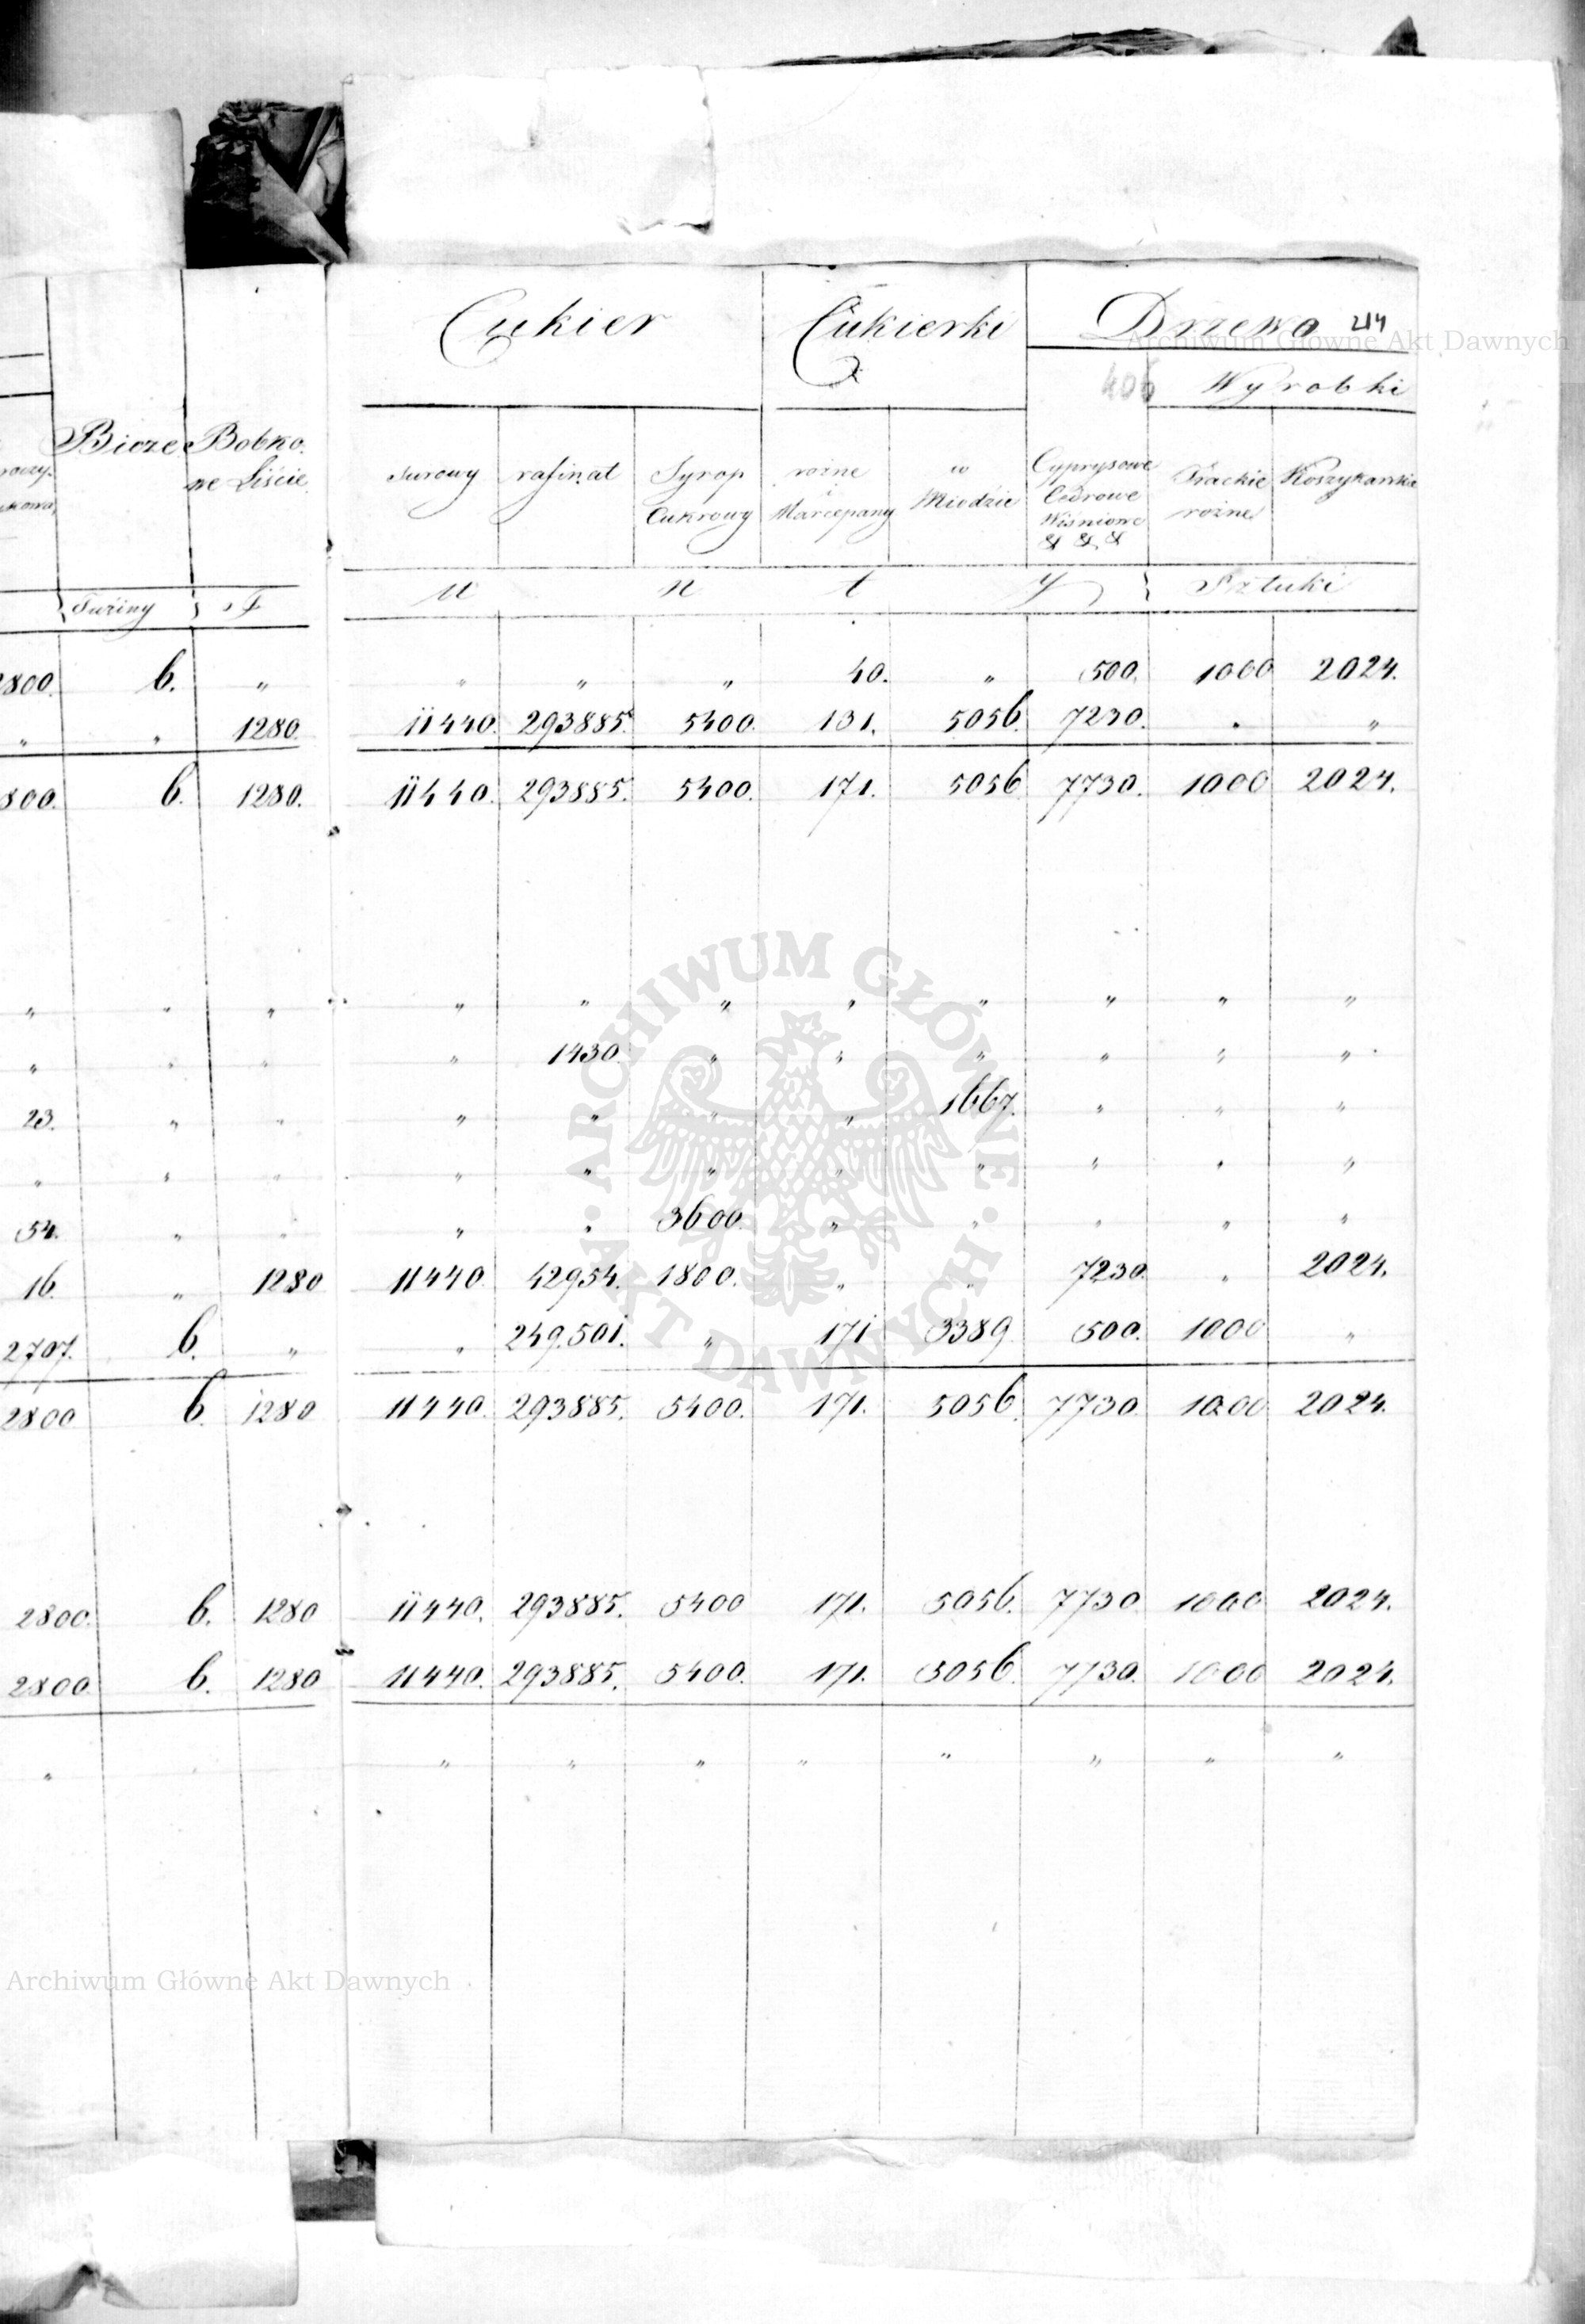 Cukier Cukierki Drzewo 214
406 Wyrobki
Bicze Bobko:
we Liście
surowy rafinat Syrop Cukrowy rożne i Marcepany w Miodzie Cyprysowe Cedrowe Wiśniowe & & & Tkackie rożne Koszykarskie
Tuziny F u n t y Sztuki
2800. 6. " " " " 40. " 500. 1000 2024.
" " 1280 11440. 293885. 5400. 131. 5056. 7230. " "
800. 6. 1280. 11440. 293885. 5400. 171. 5056 7730. 1000 2024.
" " " " " " " " " " "
" " " " 1430. " " " " " "
23. " " " " " " 1667. " " "
" " " " " " " " " " "
54. " " " " 3600. " " " " "
16. " 1280 11440. 42954. 1800. " " 7230. " 2024.
2707. 6. " " 249.501. " 171 3389. 500. 1000 "
2800 6. 1280 11440. 293885. 5400. 171. 5056. 7730 1000 2024.
2800. 6. 1280 11440. 293885. 5400 171. 5056. 7730 1000 2024.
2800. 6. 1280 11440. 293885. 5400. 171. 5056. 7730. 1000 2024.
" " " " " " " " "
Archiwum Główne Akt Dawnych
ARCHIWUM GŁÓWNE · AKT DAWNYCH ·
Archiwum Główne Akt Dawnych